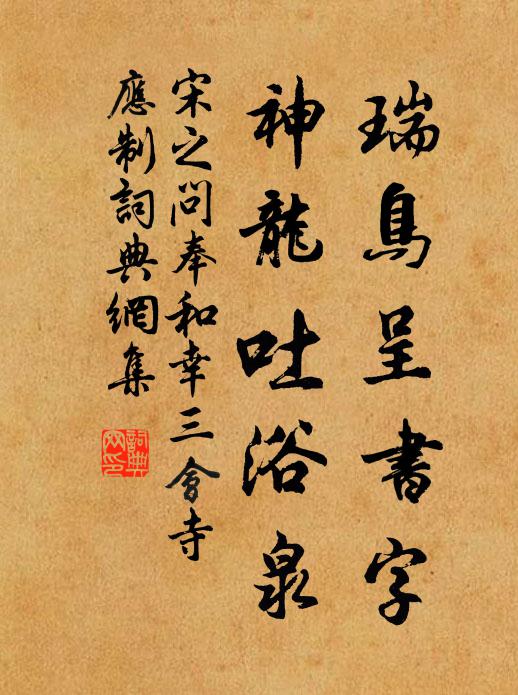 瑞鳥呈書字
神龍吐浴泉
宋之問奉和幸三會寺
應制詞典網集
詞典网印